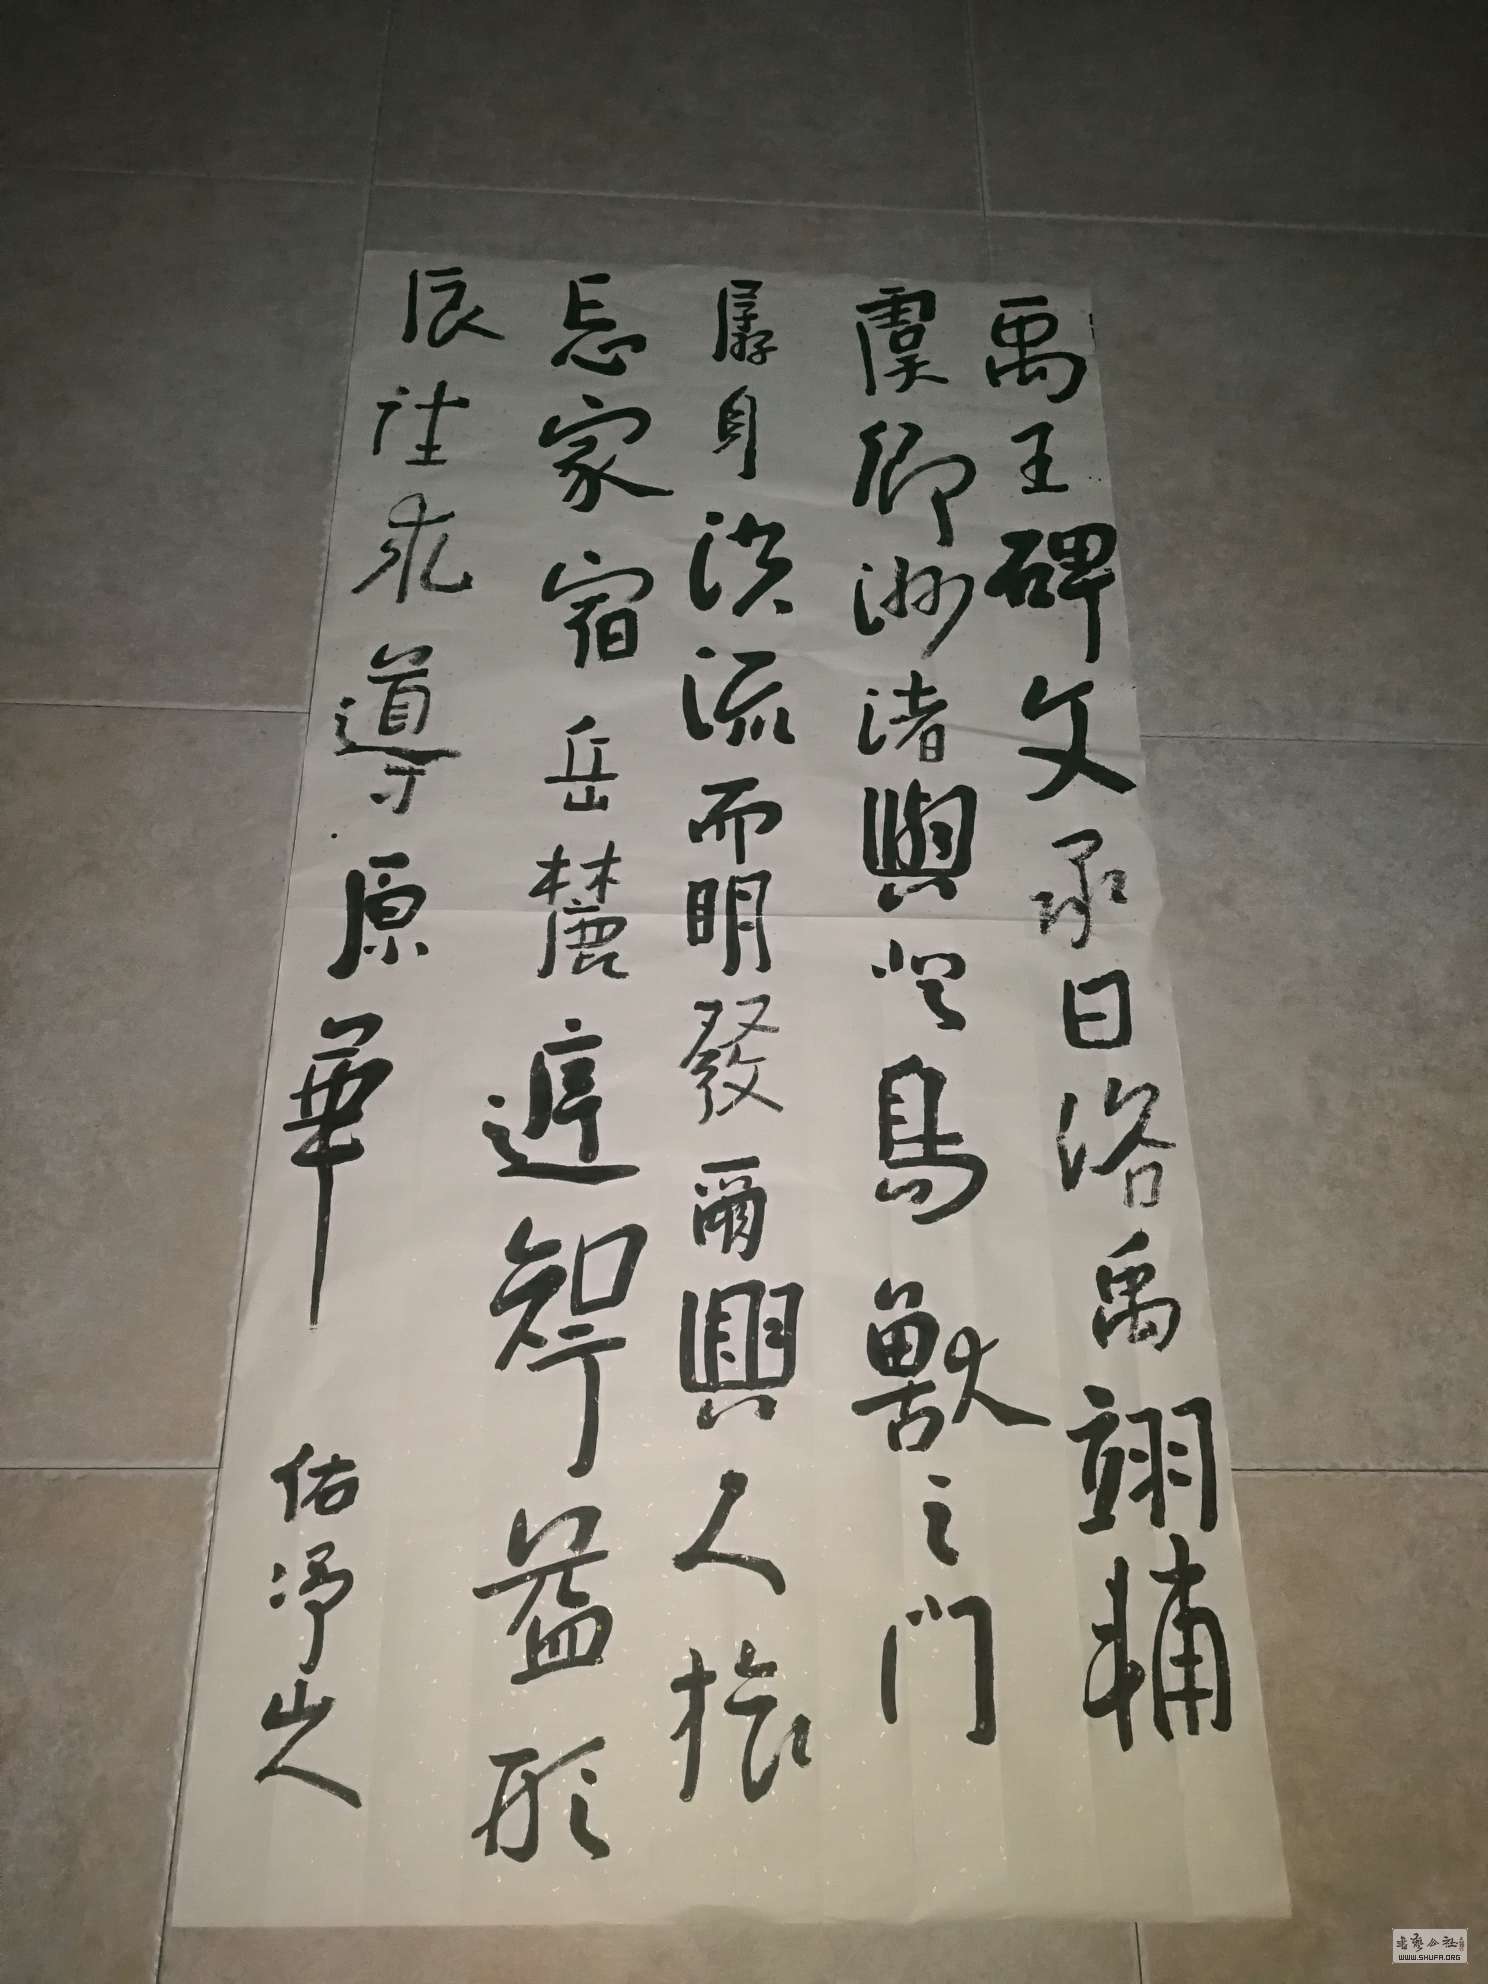 禹王碑文承曰洛禹翊輔
虞卿洲渚與登鳥獸之門
孱身洪流而明發爾興人旅
忘家宿岳麓遅智益形
辰往求導原華
佑淨山人
書藝公社
WWW.SHUFA.ORG